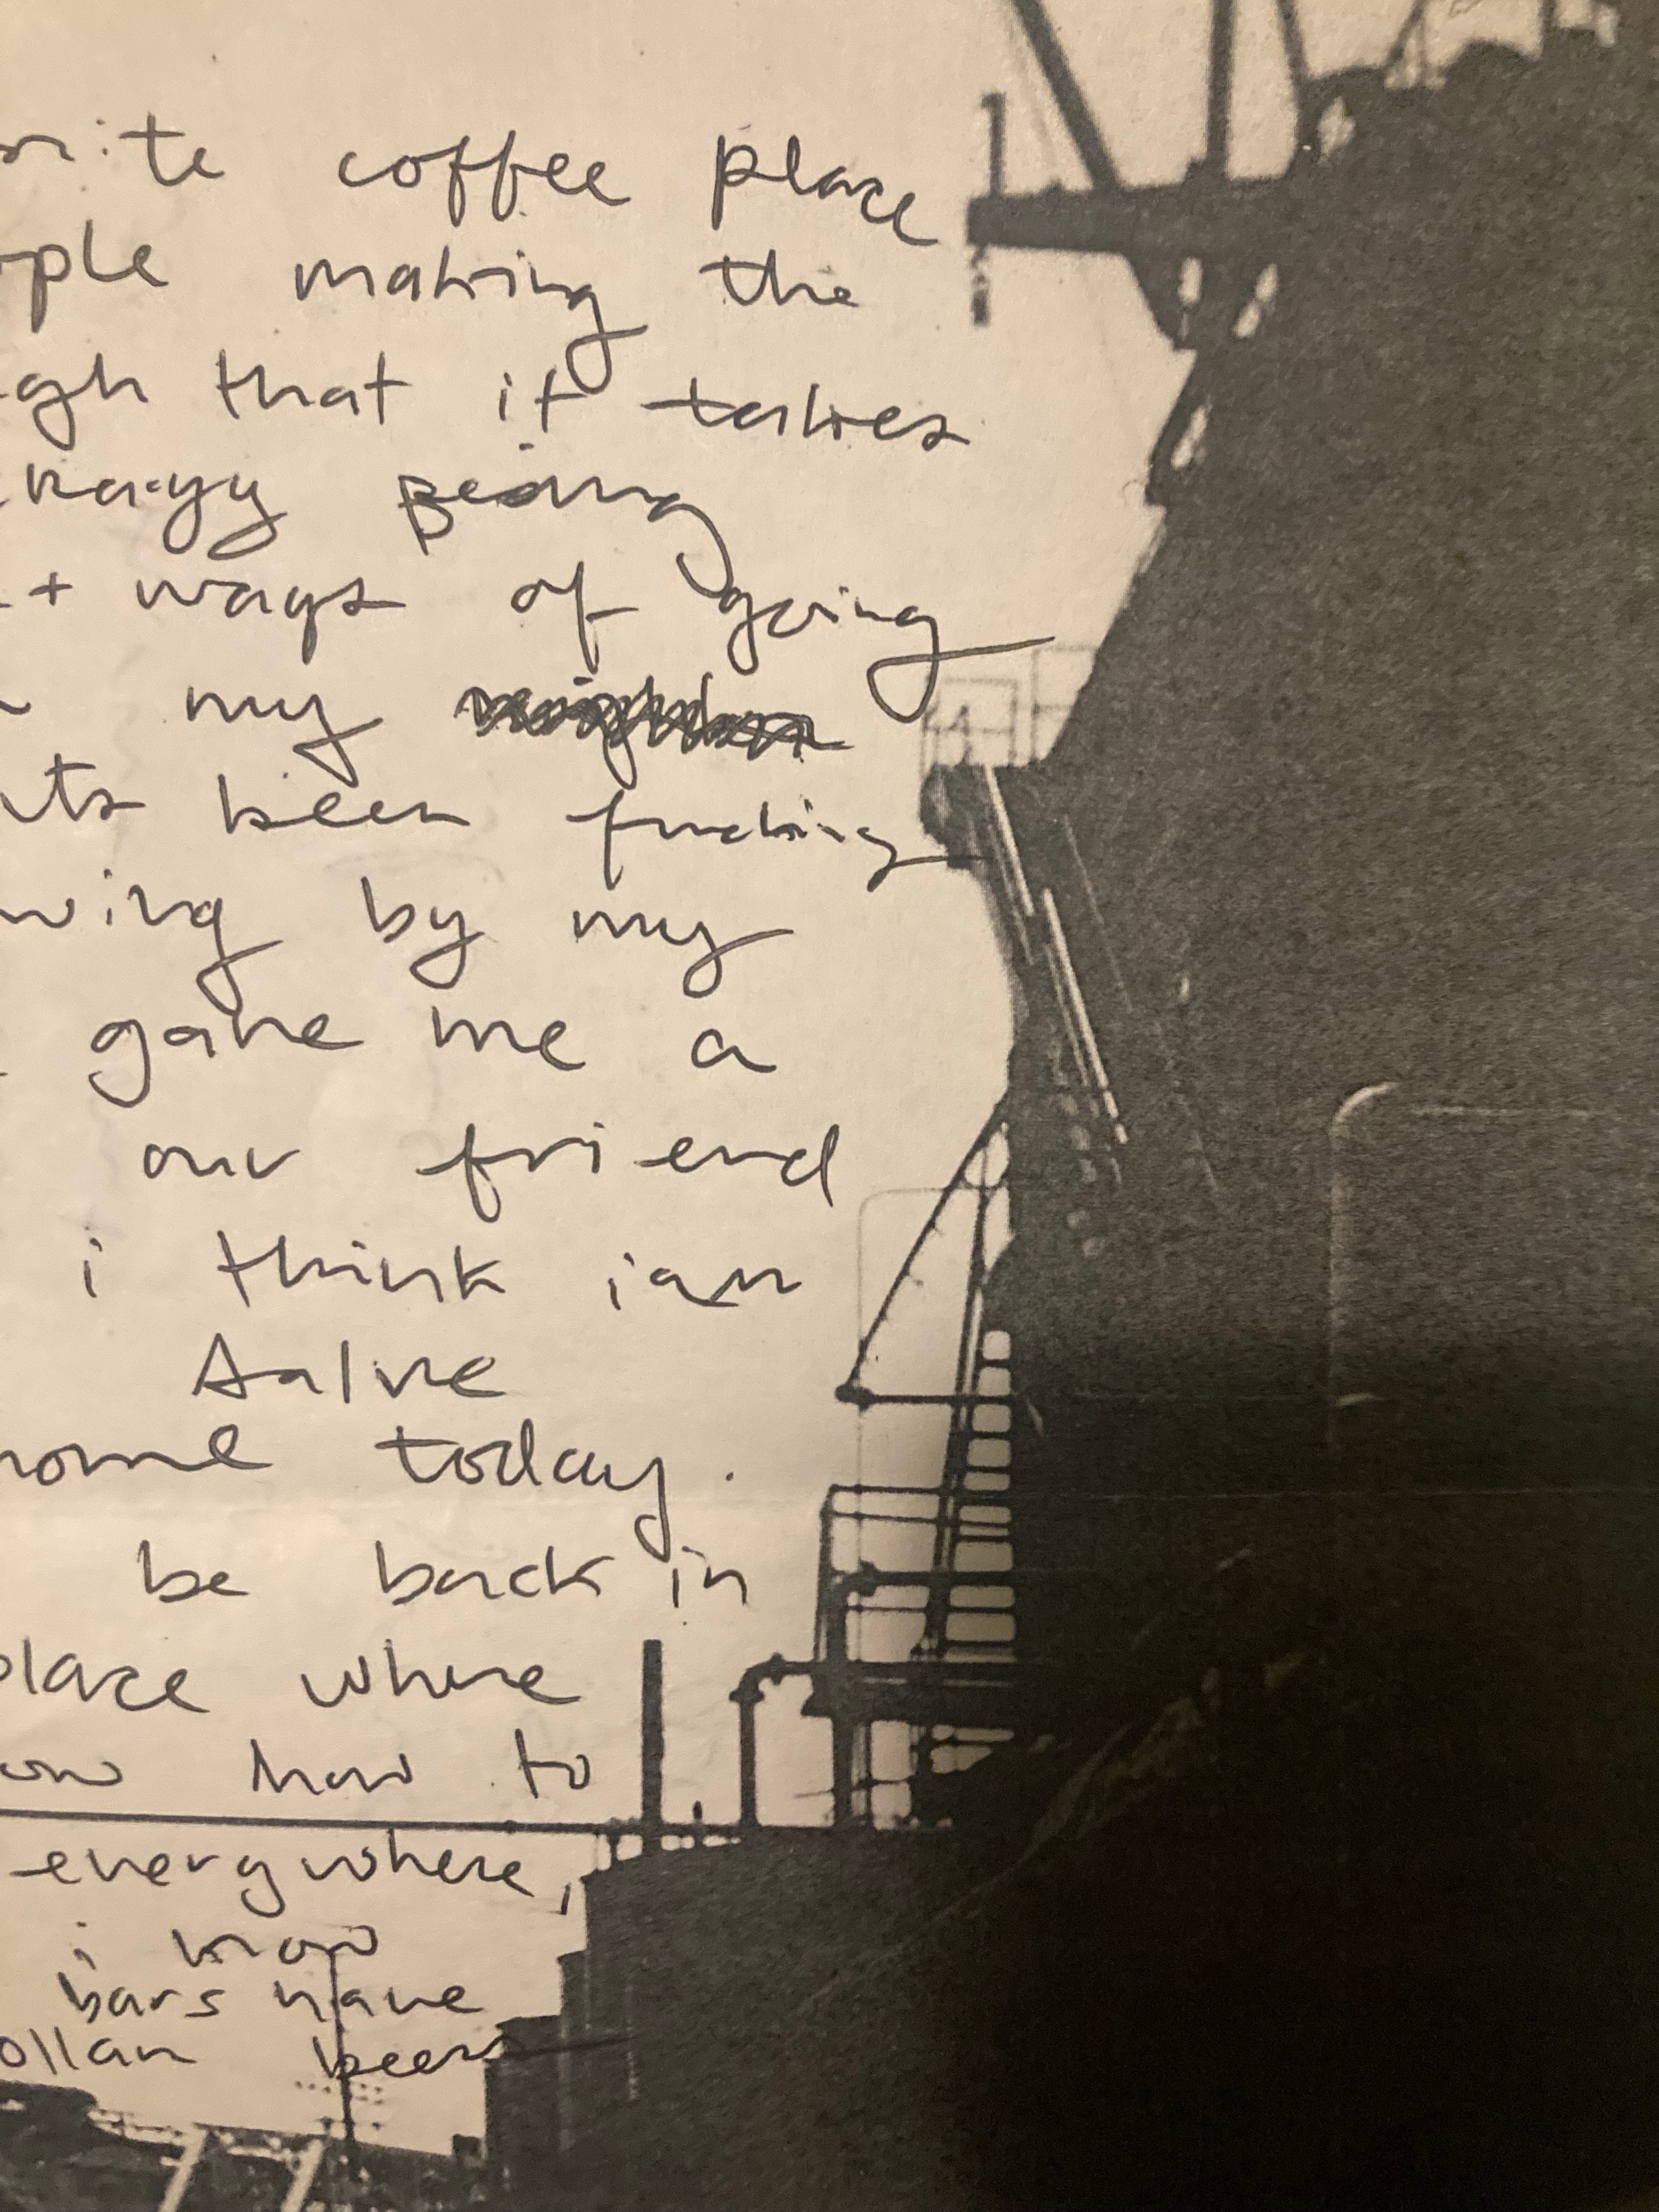 orite coffee place
ople making the
ugh that it takes
energy being
t ways of going
my
its been fucking
wing by my
gave me a
our friend
i think ian
Aalve
home today.
be back in
place where
ow how to
everywhere,
i know
bars have
ollar beers